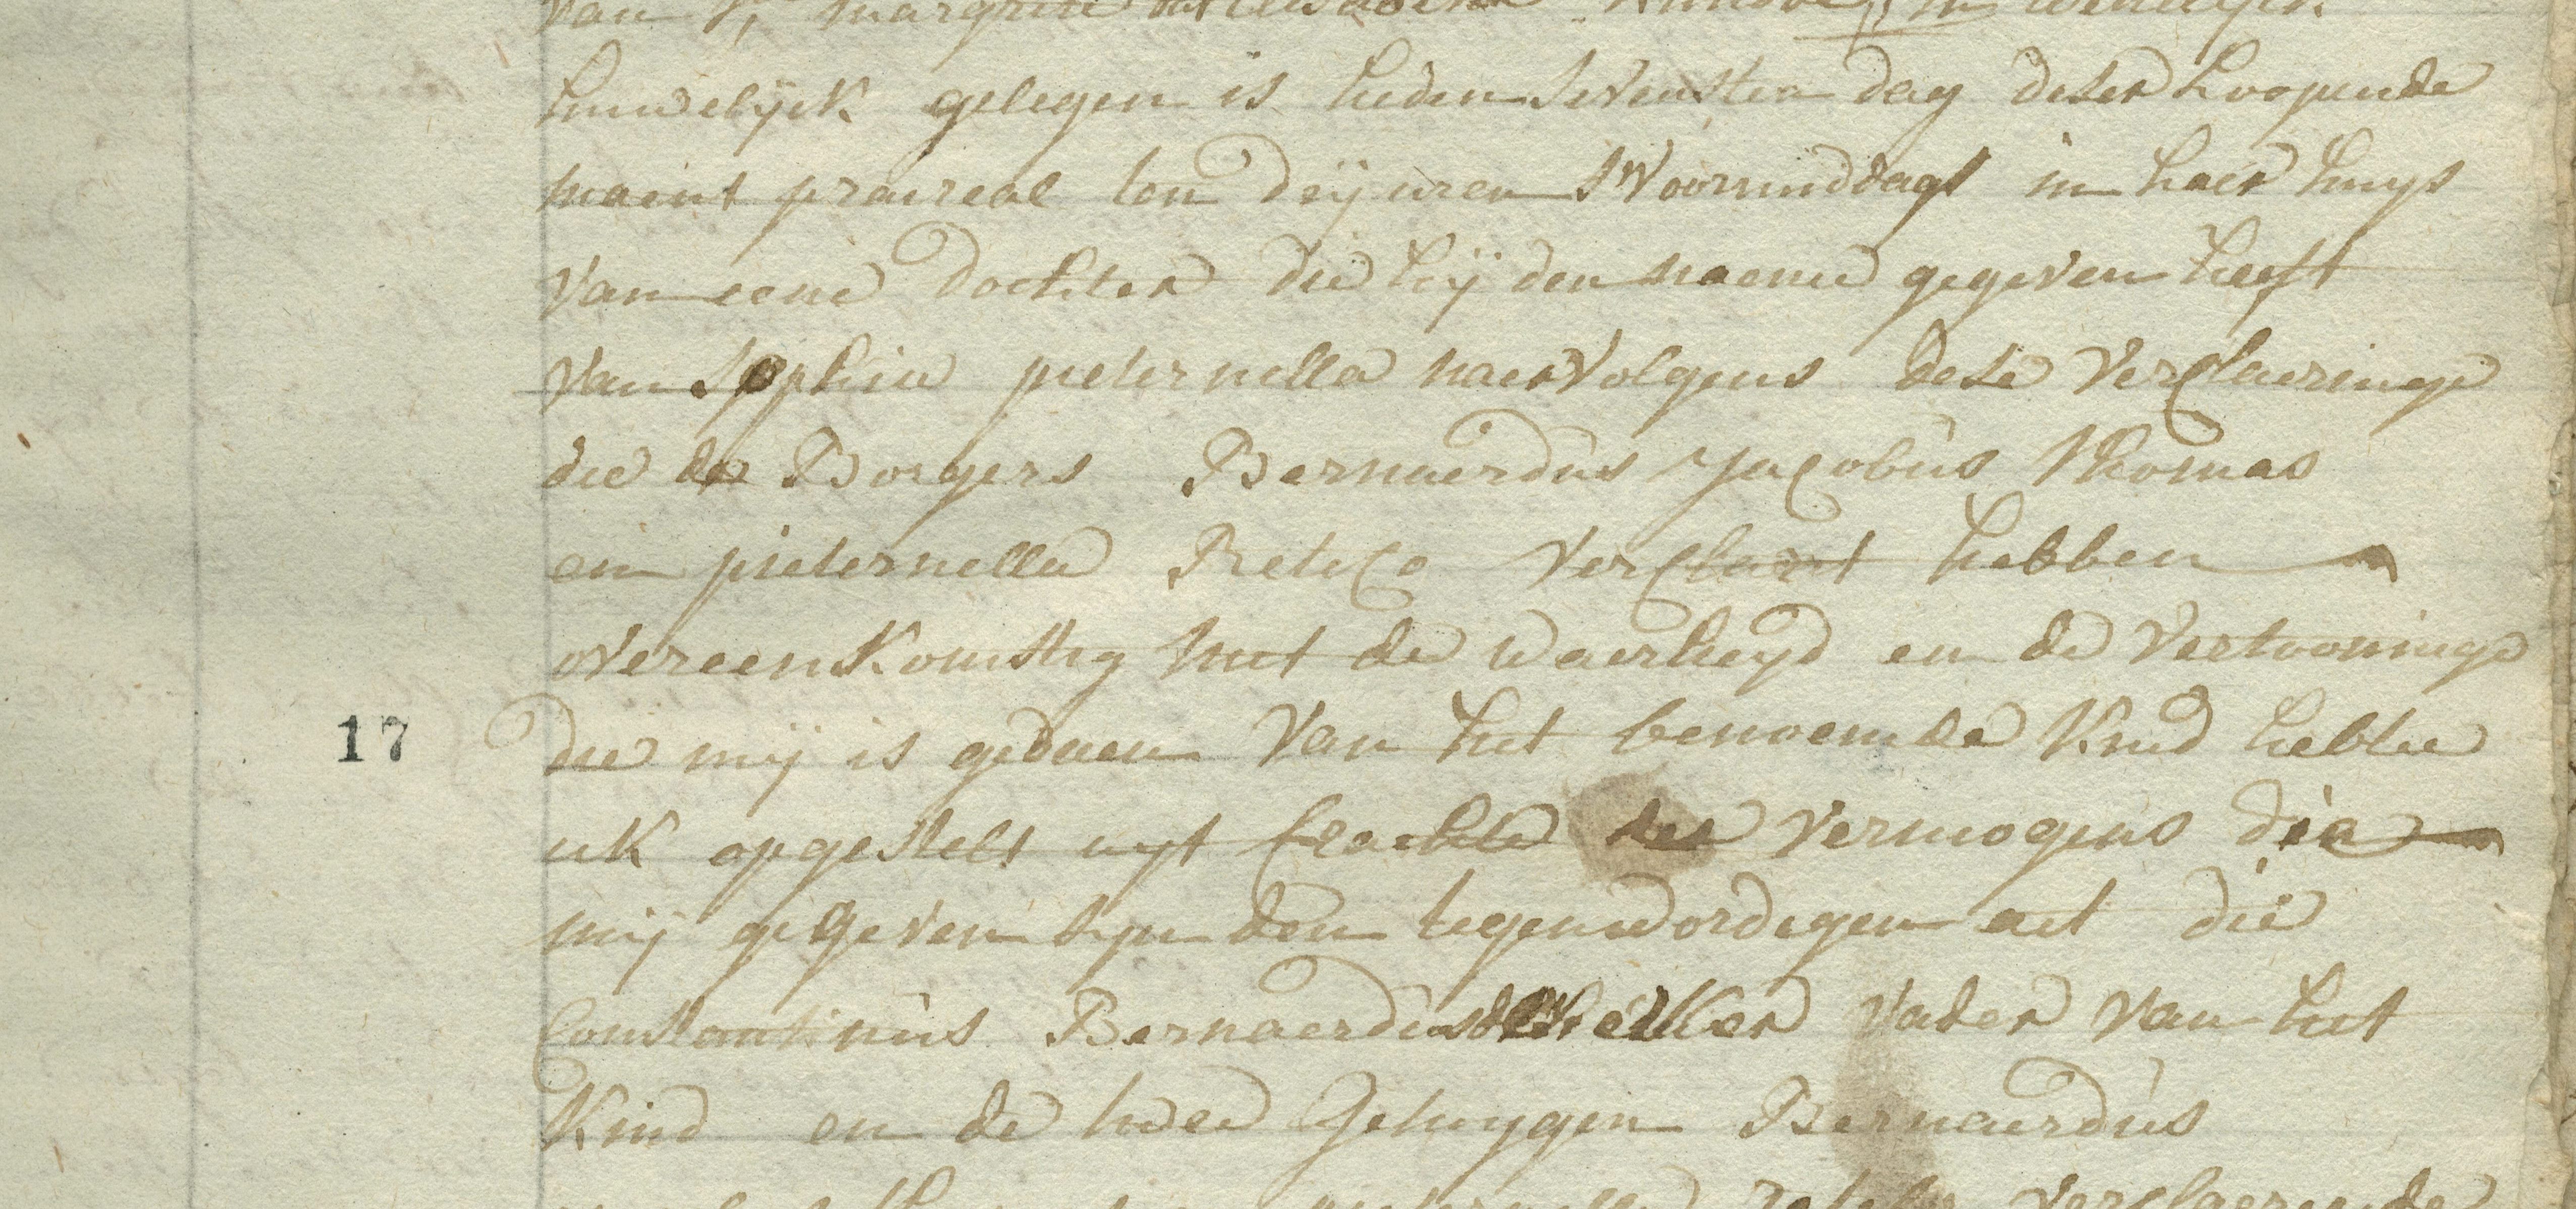 huwelijck gelegen is heden Sevensten dag deser Loopende
maent praireal ten drij uren SVoormiddags in haer huys
van eene dochter die hij den naeme gegeven heeft
van Sophia pieternella naer volgens dese Verclaeringe
die de Borgers Bernaerdus Jacobus Thomas
en pieternella Reteco Verclaert hebben
overeenkomstig met de waerheyd en de Vertooninge
17 die mij is gedaen van het benoemde Kind hebbe
ik opgestelt uyt Crachte der vermogens die
mij gegeven syn den tegenwordigen act die
Constantinus Bernaerdus vader van het
Kind en de twee Getuygen Bernaerdus